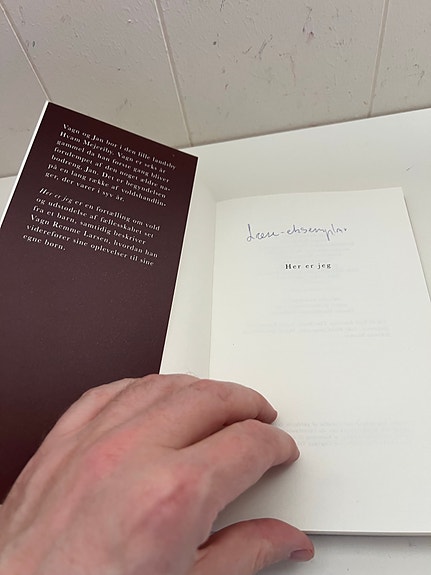 Vagn og Jan bor i den lille landsby
Hvam Mejeriby. Vagn er seks år
gammel da han første gang bliver
forulempet af den noget ældre na-
bodreng, Jan. Det er begyndelsen
på en lang række af voldshandlin-
ger, der varer i syv år.
Her er jeg er en fortælling om vold
og udstødelse af fællesskabet set
fra et barn, samtidig beskriver
Vagn Remme Larsen, hvordan han
viderefører sine oplevelser til sine
egne børn.
Læse-eksemplar
Her er jeg